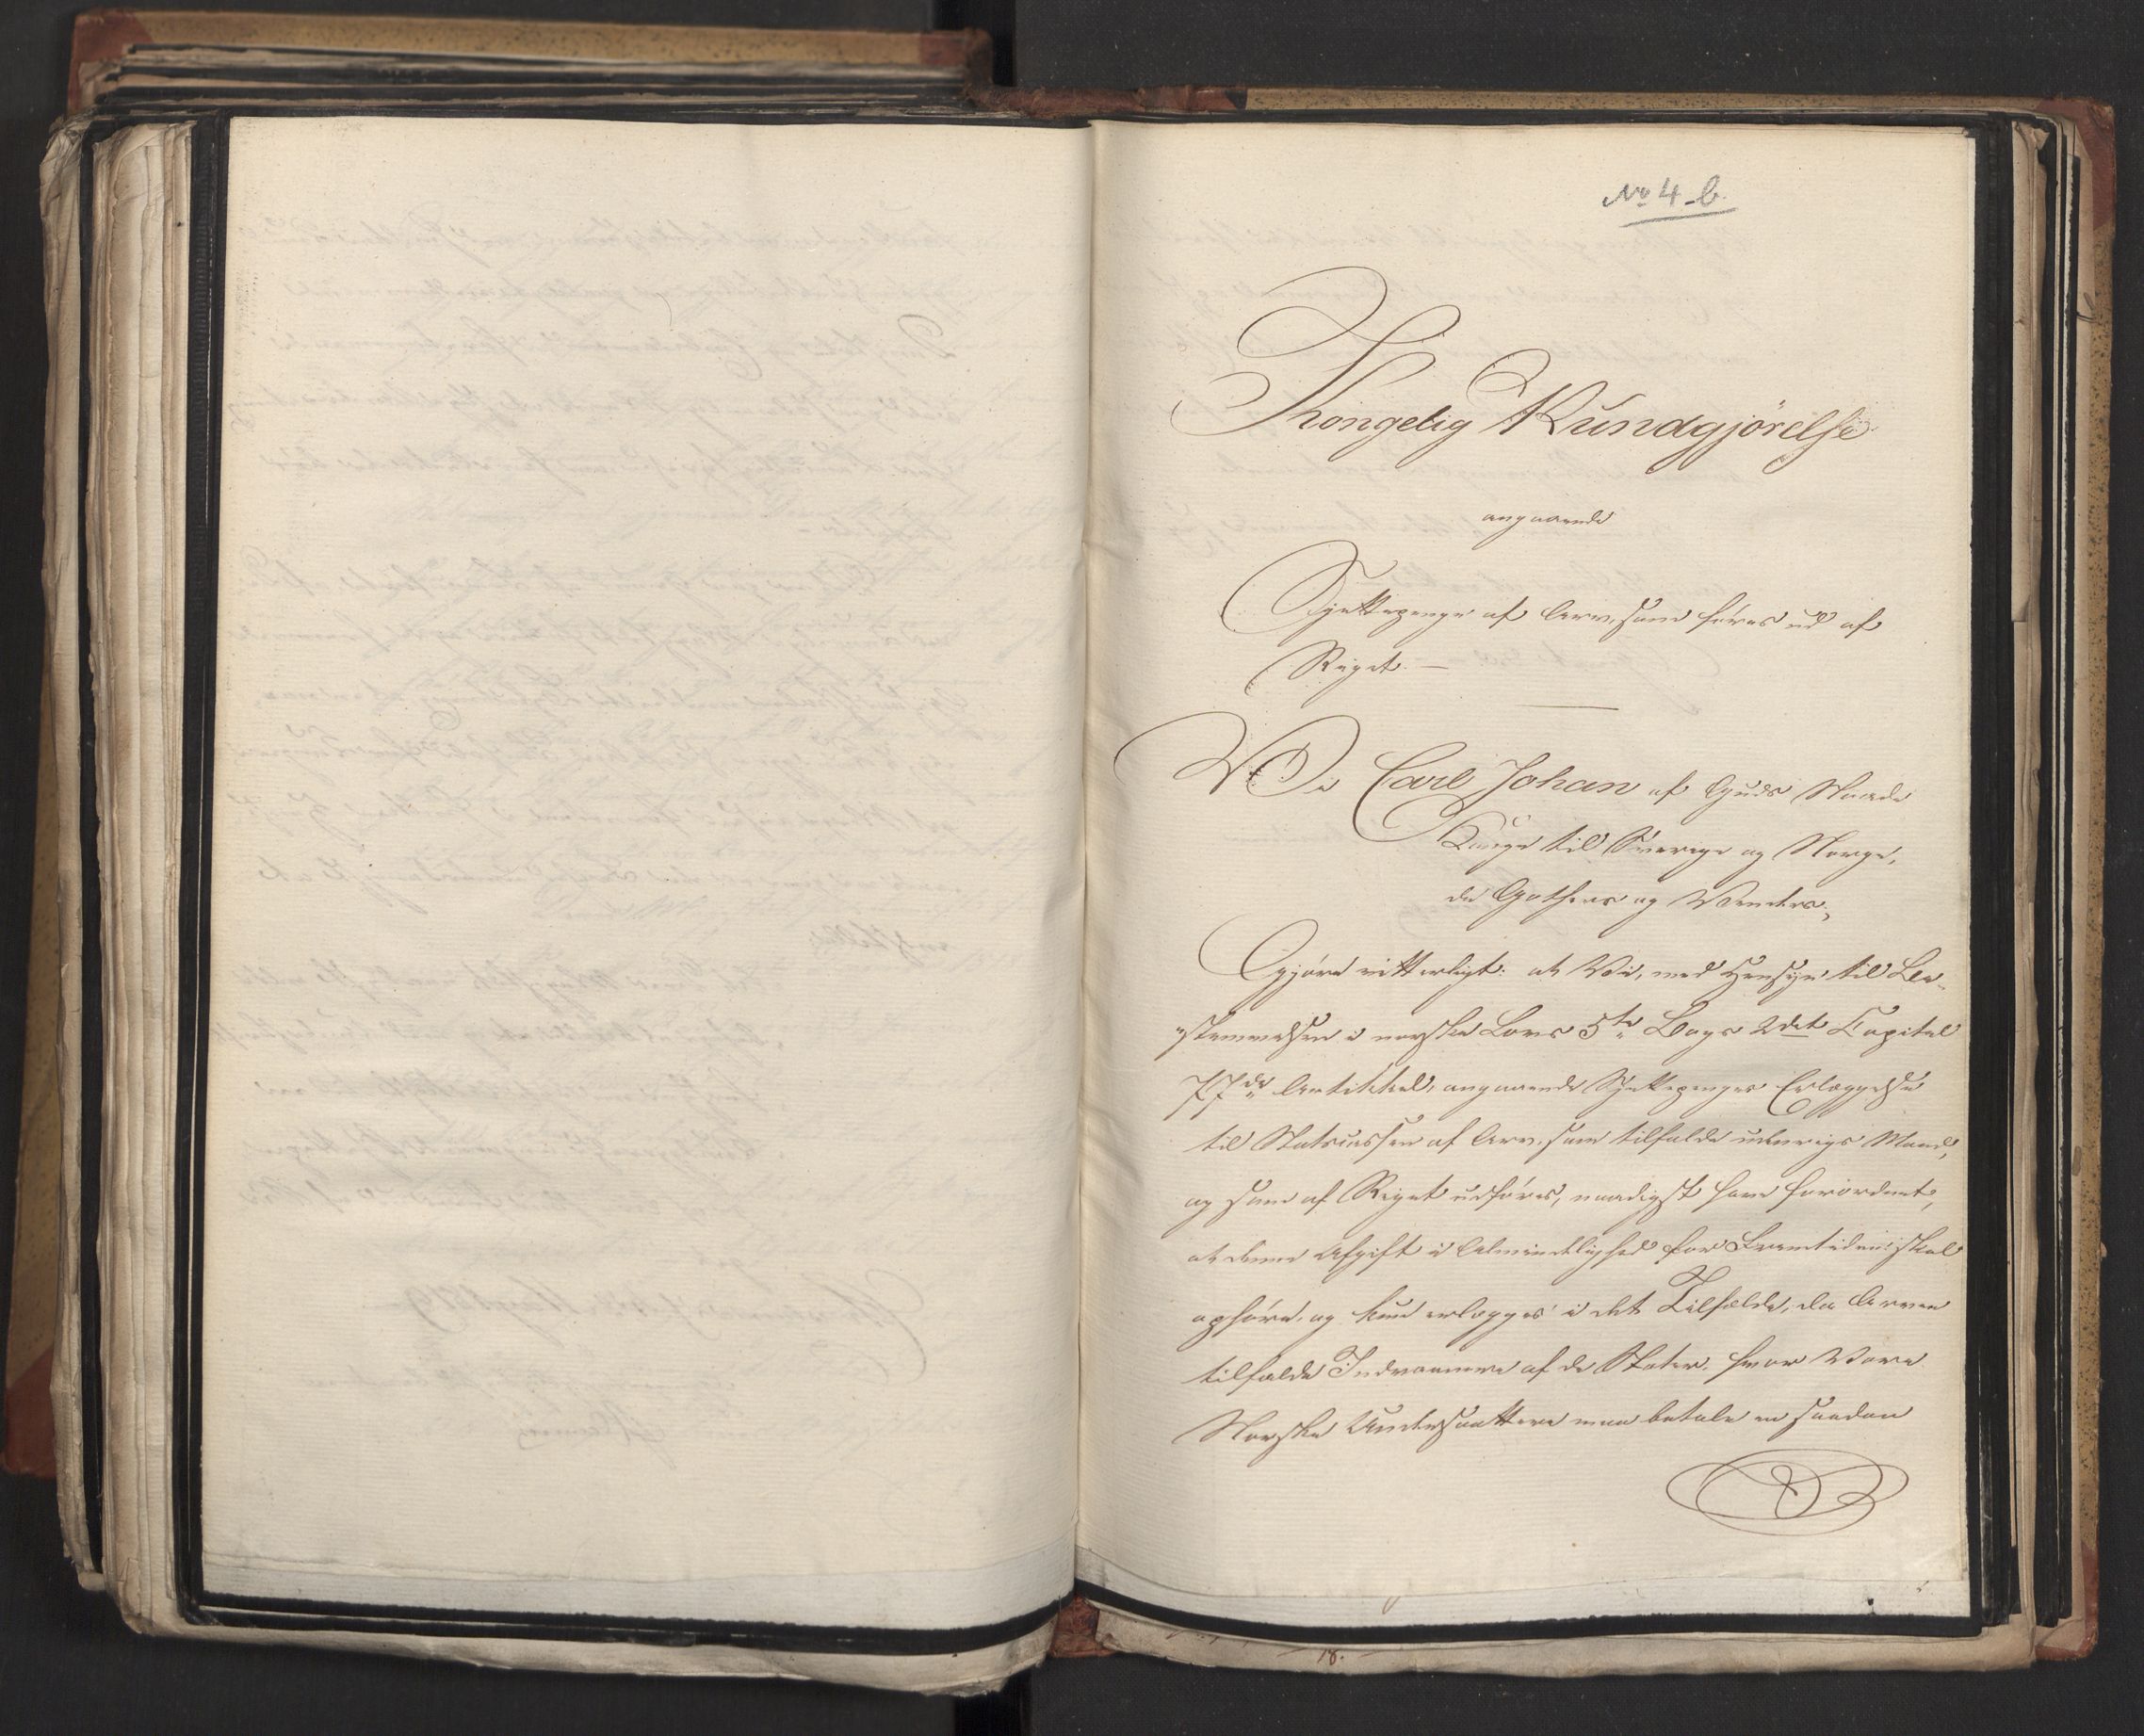 No 4 b.
Kongelig Kundgjörelse
angaaende
Sjettepenge af Arv, som föres ud af
Riget. —
Wi Carl Johan af Guds Naade
Konge til Sverige og Norge,
de Gothers og Wenders,
Gjöre vitterligt: at Vi, med Hensyn til Be-
stemmelsen i norske Lovs 5te Bogs 2det Capitel
77de Artikkel, angaaende Sjettepenges Erlæggelse
til Statscassen af Arv, som tilfalde udenrigs Mænd,
og som af Riget udföres, naadigst have forordnet,
at denne Afgift i Almindelighed for Fremtiden skal
ophöre, og kun erlægges i det Tilfælde, da Arven
tilfalde Indvaanere af de Stater, hvor Vore
Norske Undersaattere maa betale en saadan
18.